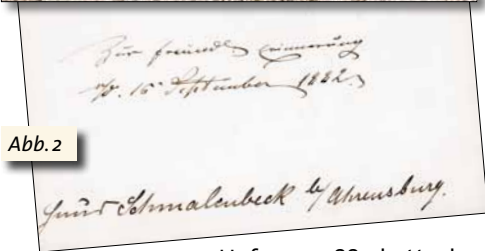 Zur freundl. Erinnerung
15 September 1882.
Abb. 2
Schmalenbeck b/ Ahrensburg.